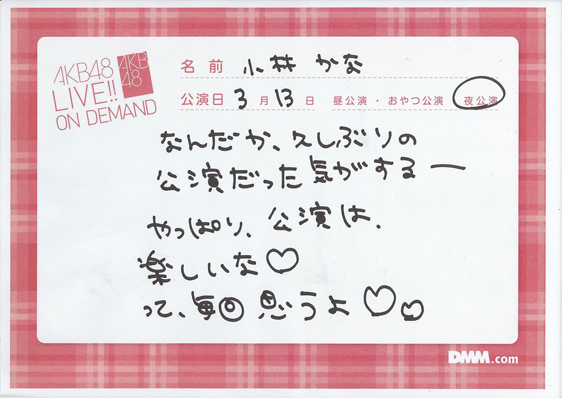 AKB48
LIVE!!
ON DEMAND
AKB
48
名前 小林 かな
公演日 3月13日 昼公演・おやつ公演 夜公演
なんだか、久しぶりの
公演だった気がするー
やっぱり、公演は、
楽しいな♡
って、毎回思うよ♡♡
DMM.com